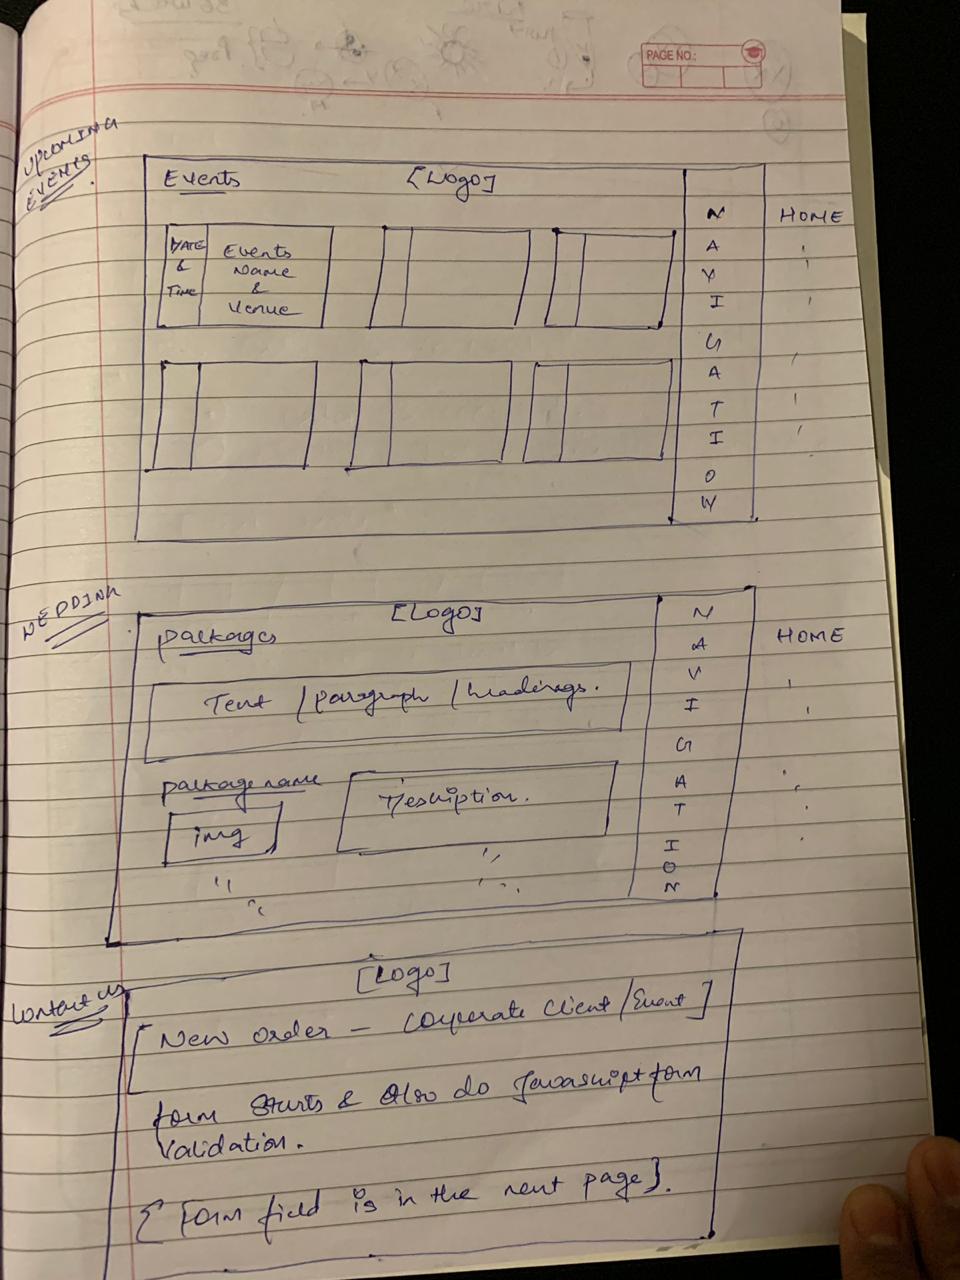 PAGE NO.:
UPCOMING
EVENTS
Events [Logo]
DATE
&
Time
Events
Name
&
Venue
NAVIGATION
HOME
WEDDING
packages [Logo]
Text / paragraph / headings.
package name
img
Description.
NAVIGATION
HOME
Contact us
[Logo]
[New order - Corporate Client / Event]
form Starts & Also do Javascript form
validation.
{ Form field is in the next page }.